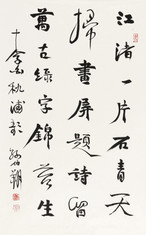 江渚一片石青天
掃畫屏題詩留
萬古綠字錦苔生
秋浦歌 孫伯翔